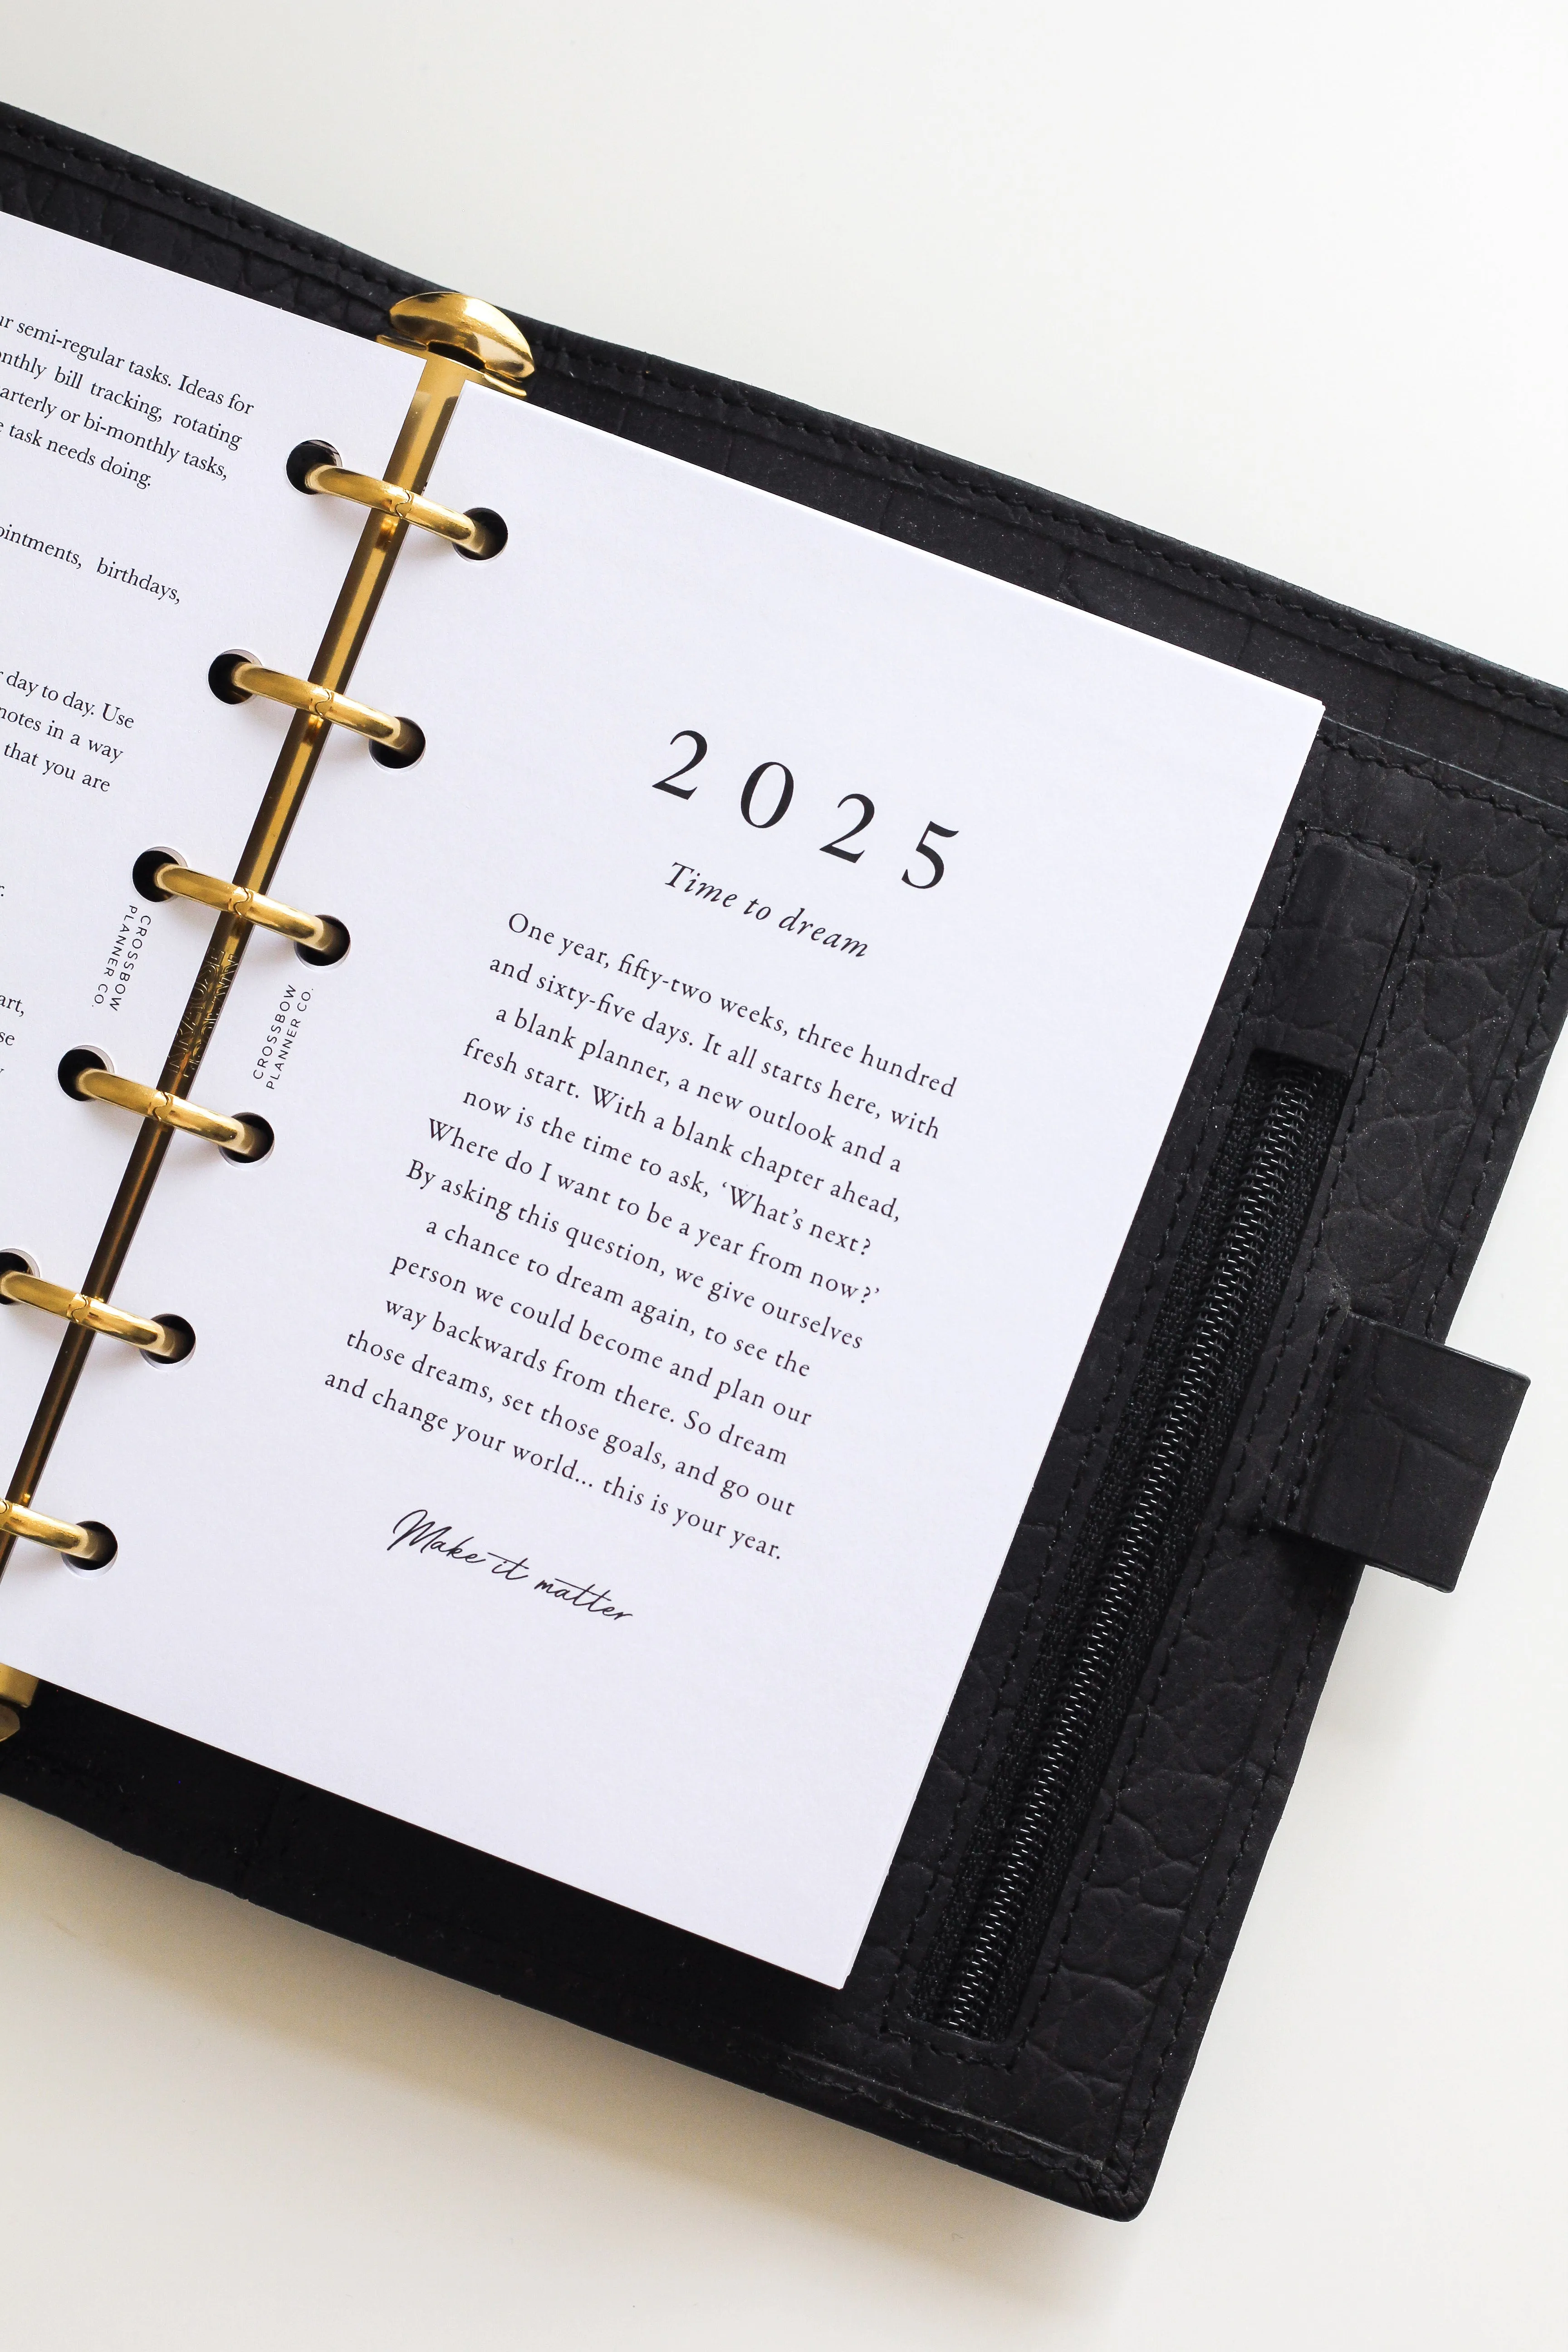 semi-regular tasks. Ideas for
bill tracking, rotating
or bi-monthly tasks,
task needs doing.
birthdays,
day to day. Use
notes in a way
that you are
CROSSBOW
PLANNER CO.
CROSSBOW
PLANNER CO.
2025
Time to dream
One year, fifty-two weeks, three hundred
and sixty-five days. It all starts here, with
a blank planner, a new outlook and a
fresh start. With a blank chapter ahead,
now is the time to ask, ‘What’s next?
Where do I want to be a year from now?’
By asking this question, we give ourselves
a chance to dream again, to see the
person we could become and plan our
way backwards from there. So dream
those dreams, set those goals, and go out
and change your world... this is your year.
Make it matter